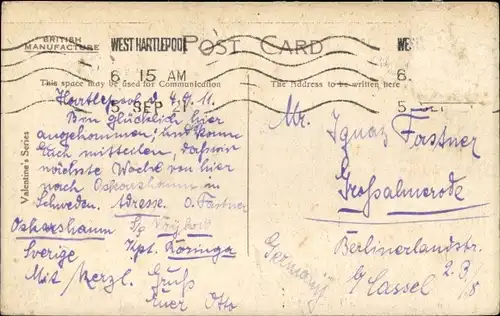 BRITISH
MANUFACTURE
WEST HARTLEPOOL
POST CARD
6. 15 AM
6.
This space may be used for Communication
The Address to be written here
15 SEP 21
5 21
Valentine's Series
Hartlepool d. 4.9.
Bin glücklich hier
angekommen, und kann
Euch mitteilen, dass wir
nächste Woche von hier
nach Oskarshamn in
Schweden. Adresse. O. Fastner
Oskarshamn
Sverige Kpt.
Mit herzl. Gruß
Euer Otto
Mr.
Ignaz Fastner
Großalmerode
Berlinerlandstr.
Germany
Cassel